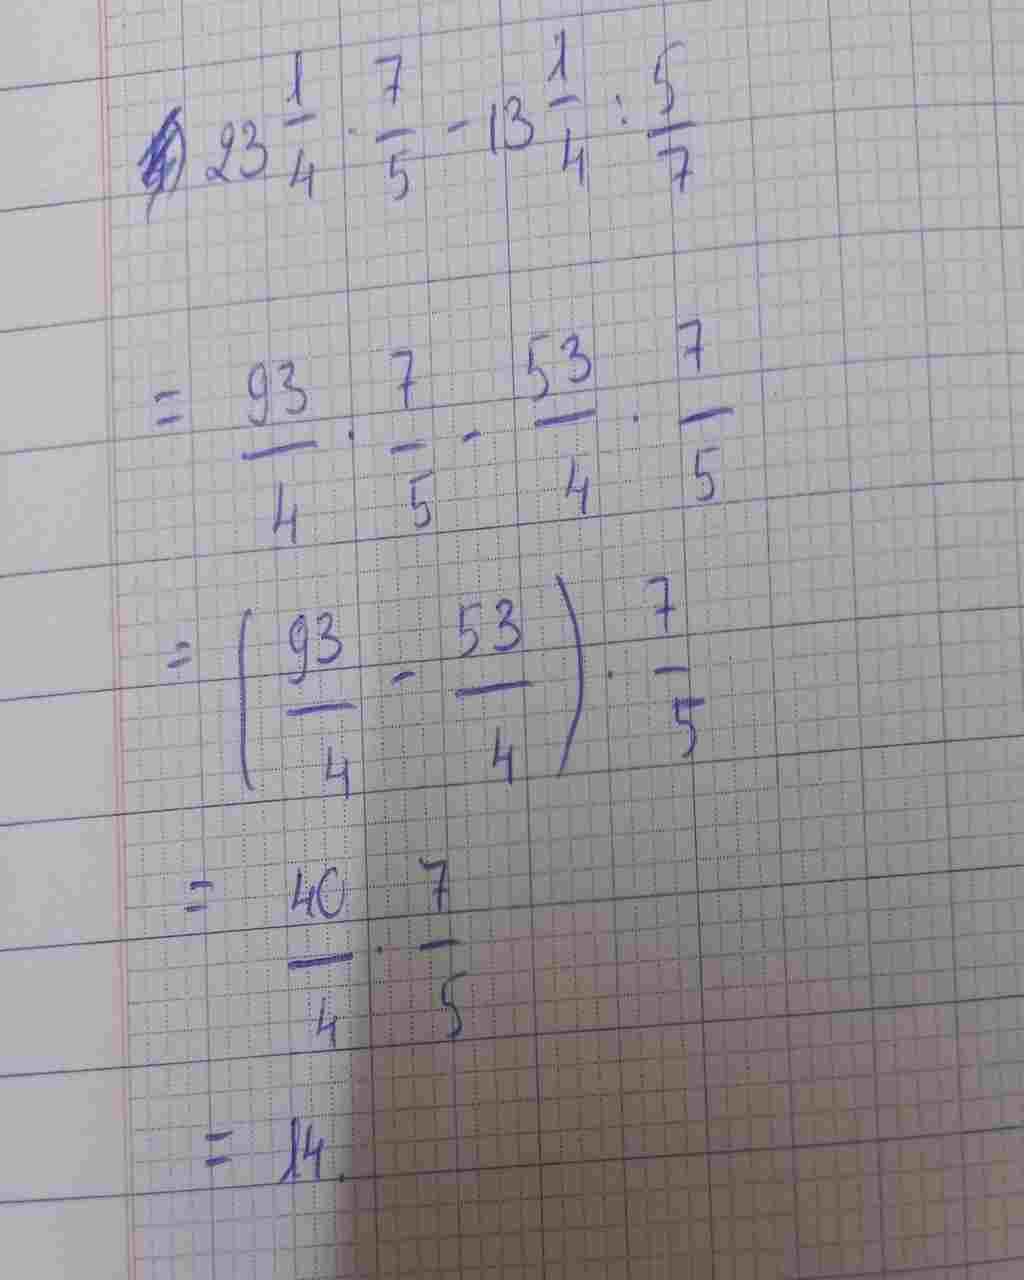 23 1/4 · 7/5 - 13 1/4 : 5/7
= 93/4 · 7/5 - 53/4 · 7/5
= (93/4 - 53/4) · 7/5
= 40/4 · 7/5
= 14.